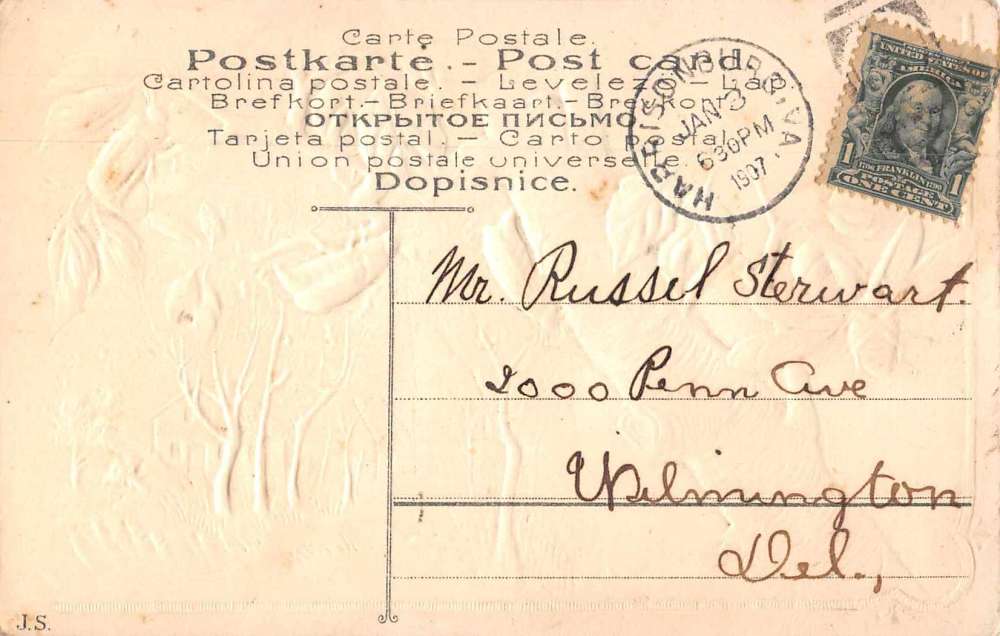 Carte Postale.
Postkarte. - Post card.
Cartolina postale. - Levelező-Lap.
Brefkort. - Briefkaart. - Brevkort.
ОТКРЫТОЕ ПИСЬМО.
Tarjeta postal. - Carto postal.
Union postale universelle.
Dopisnice.
HARRISONBURG, VA.
JAN 3
630PM
1907
UNITED STATES OF
AMERICA
1 1706 FRANKLIN 1790 1
POSTAGE
ONE CENT
Mr. Russel Sterwart.
2000 Penn Ave
Wilmington
Del.,
J.S.